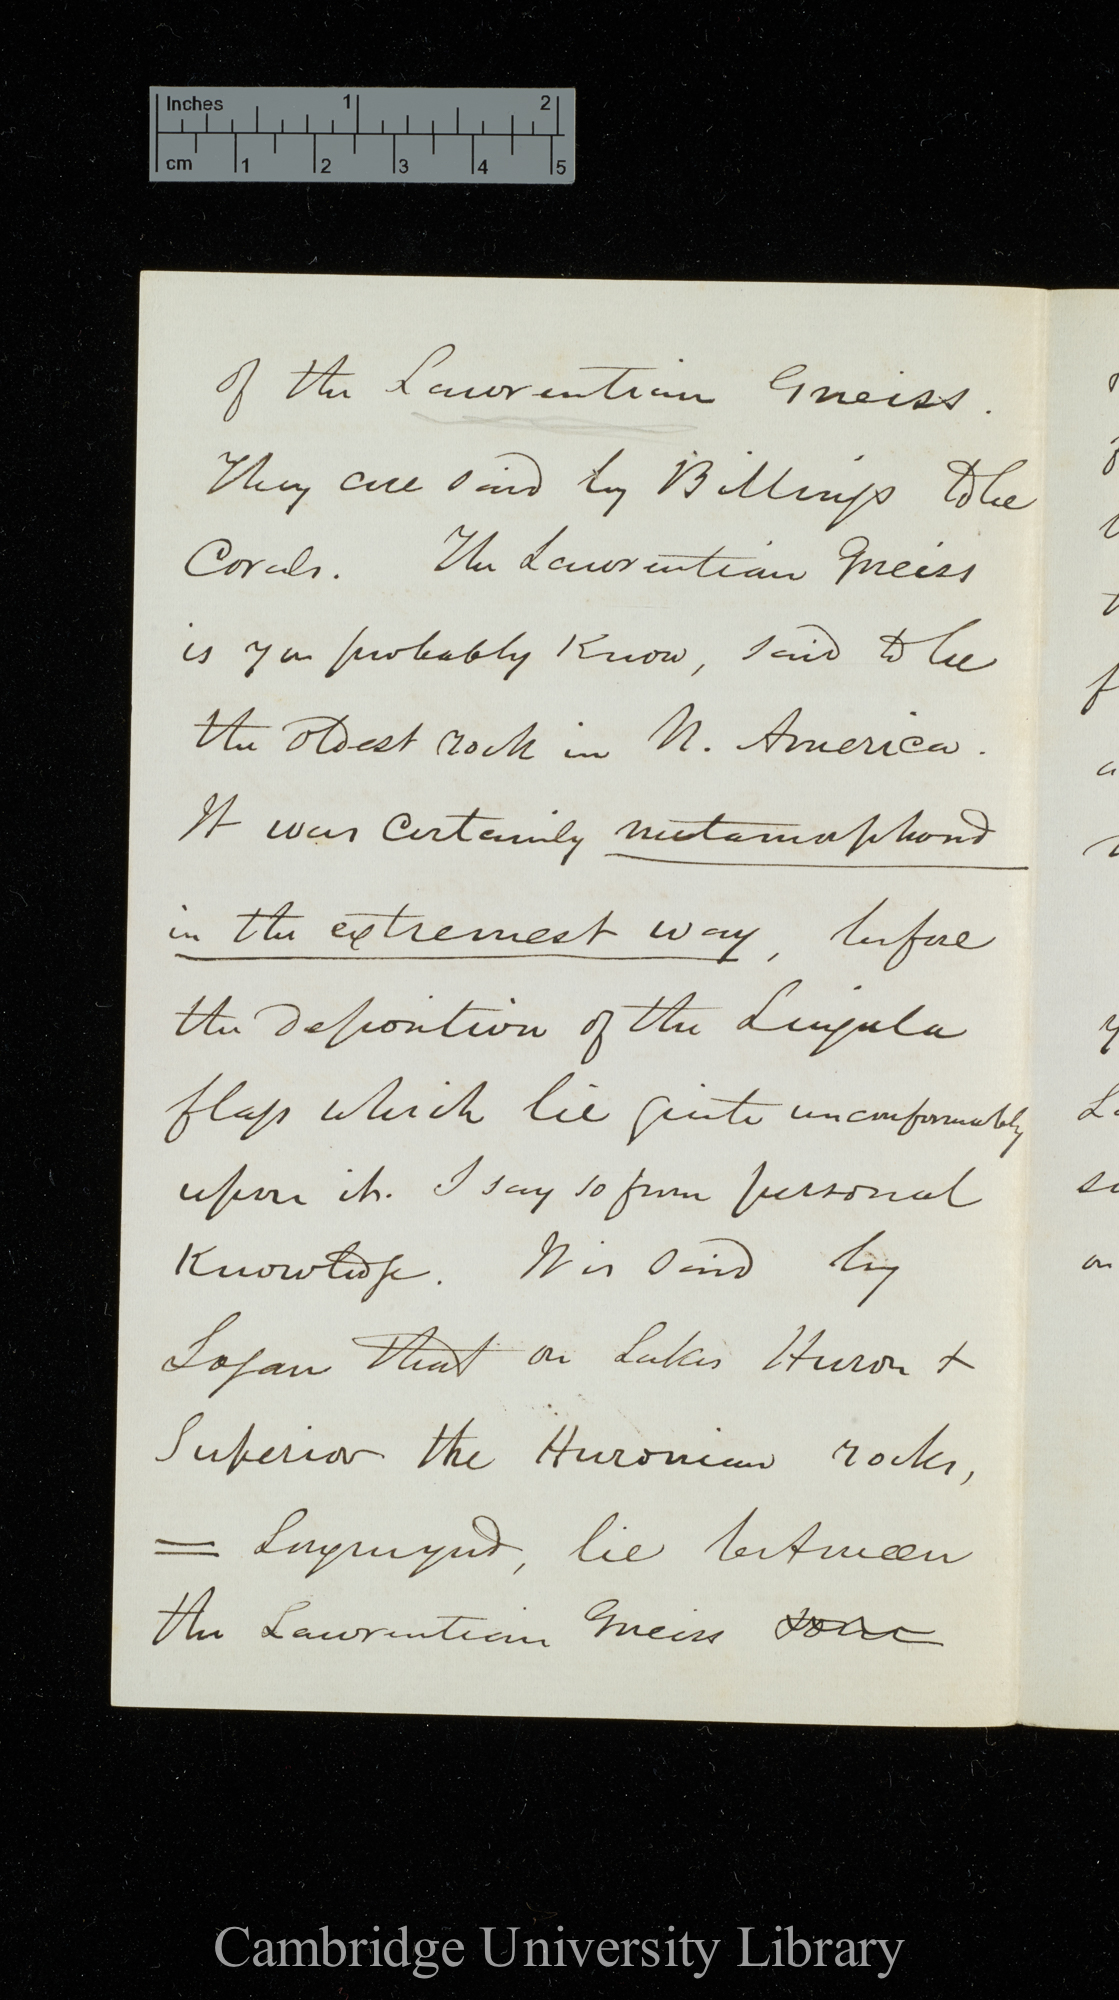 Inches 1 2
cm 1 2 3 4 5
of the Lawrentian Gneiss.
They are said by Billings to be
Corals. The Lawrentian Gneiss
is you probably know, said to be
the oldest rock in N. America.
It was certainly metamorphosed
in the extremest way, before
the deposition of the Lingula
flags which lie quite unconformably
upon it. I say so from personal
knowledge. It is said by
Logan that on Lakes Huron +
Superior the Huronian rocks,
= Longmynd, lie between
the Lawrentian Gneiss
Cambridge University Library